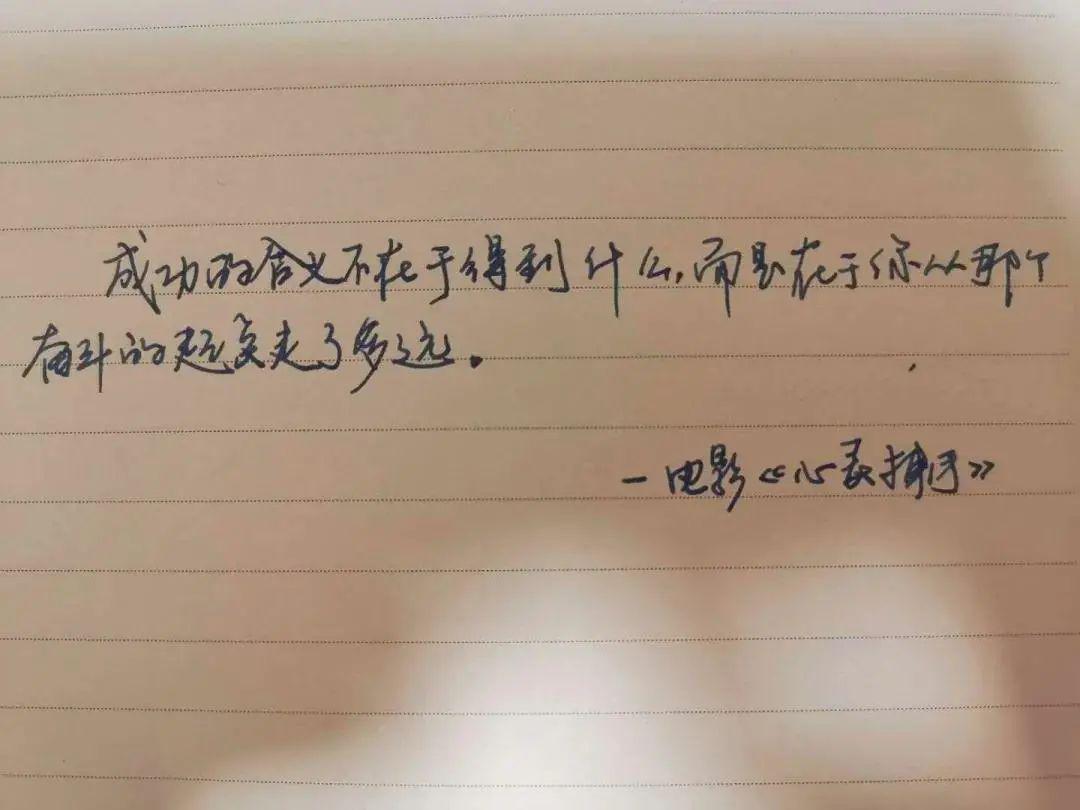 成功的含义不在于得到什么,而是在于你从那个
奋斗的起点走了多远。
—电影《心灵捕手》